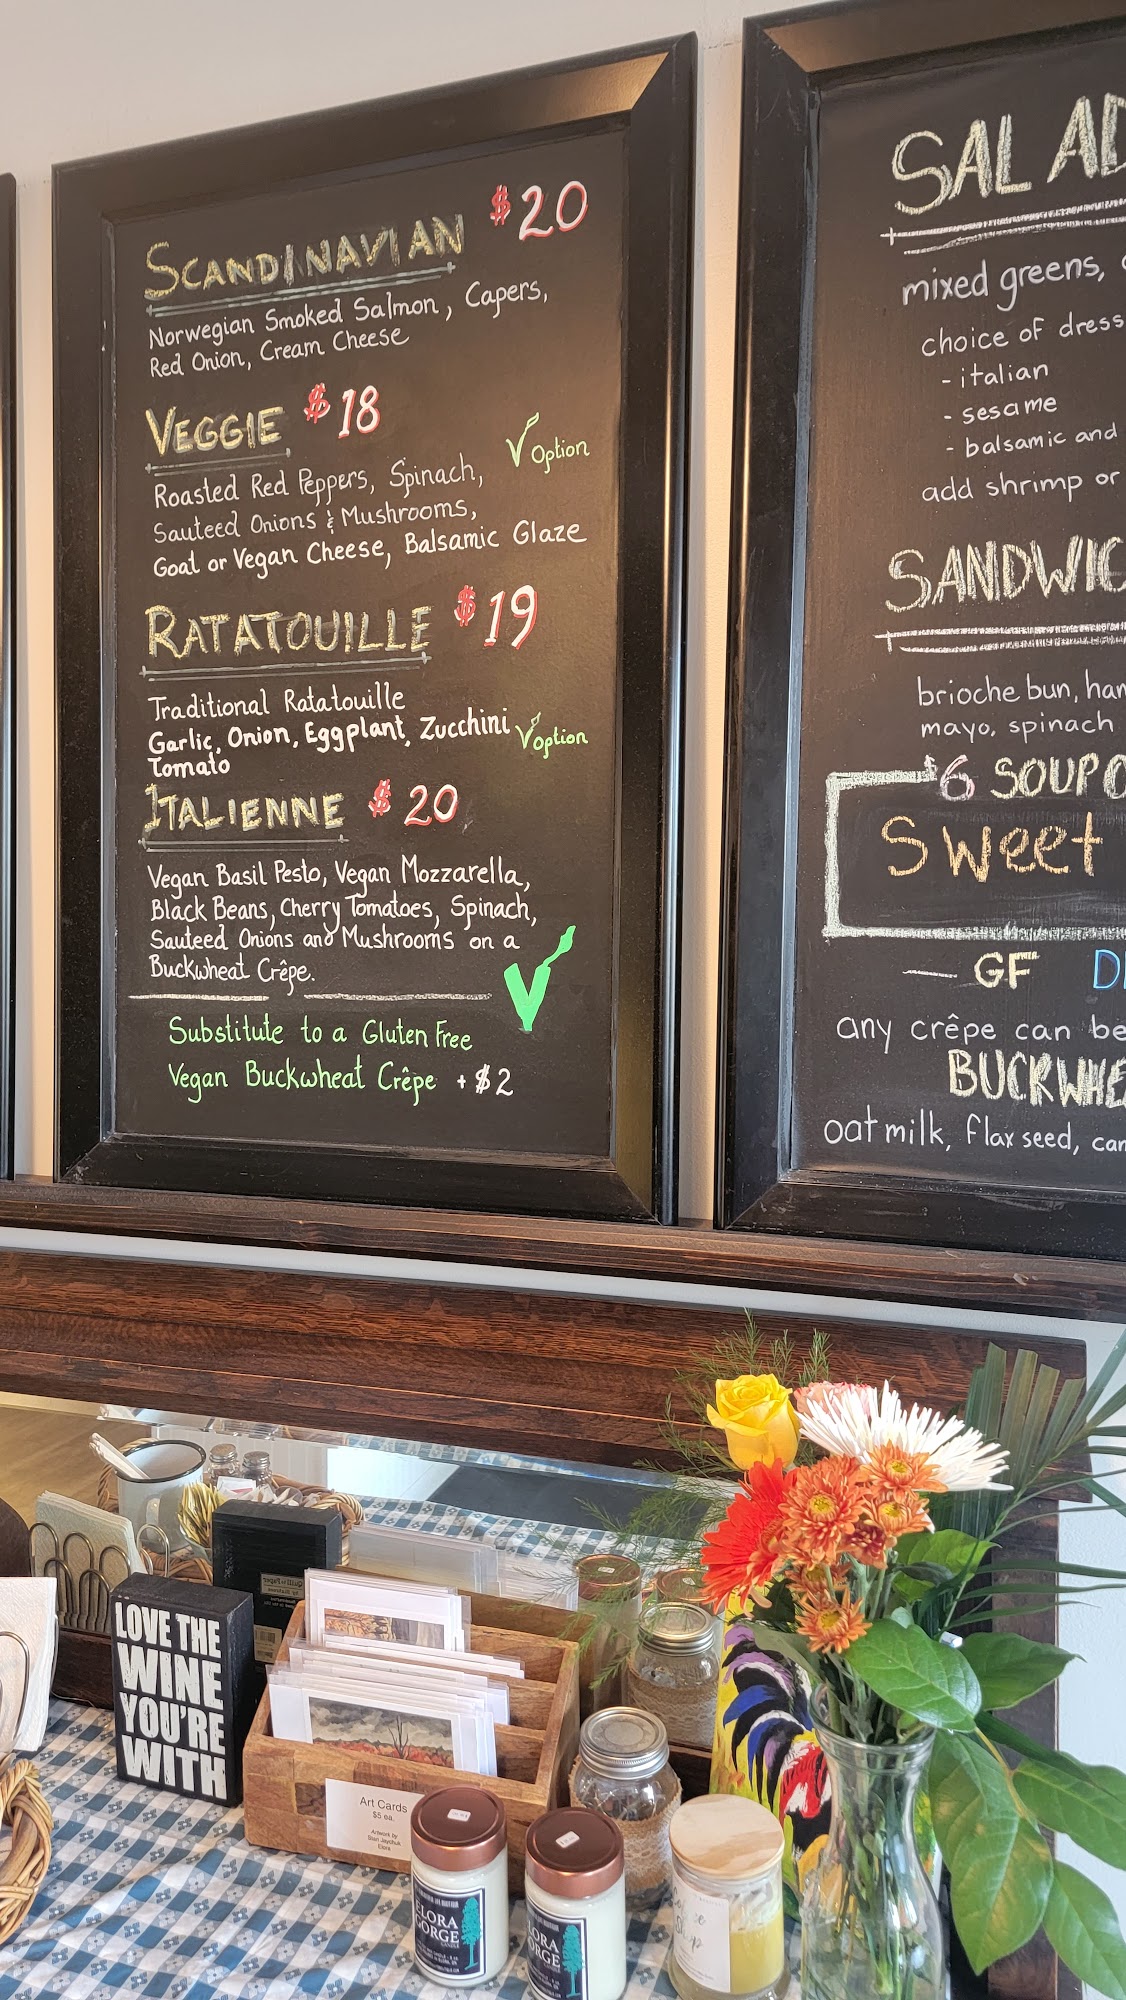 SCANDINAVIAN $20
Norwegian Smoked Salmon, Capers,
Red Onion, Cream Cheese
VEGGIE $18
V Option
Roasted Red Peppers, Spinach,
Sauteed Onions & Mushrooms,
Goat or Vegan Cheese, Balsamic Glaze
RATATOUILLE $19
Traditional Ratatouille
Garlic, Onion, Eggplant, Zucchini
V option
Tomato
ITALIENNE $20
Vegan Basil Pesto, Vegan Mozzarella,
Black Beans, Cherry Tomatoes, Spinach,
Sauteed Onions and Mushrooms on a
Buckwheat Crêpe.
V
Substitute to a Gluten Free
Vegan Buckwheat Crêpe +$2
SALAD
mixed greens,
choice of dress
- italian
- sesame
- balsamic and
add shrimp or
SANDWIC
brioche bun, ham
mayo, spinach
$6 SOUP O
Sweet
GF
any crêpe can be
BUCKWHE
oat milk, flax seed,
LOVE THE
WINE
YOU'RE
WITH
Art Cards
$5 ea.
Artwork by
Elora
ELORA
GORGE
CANDLE
LORA
ORGE